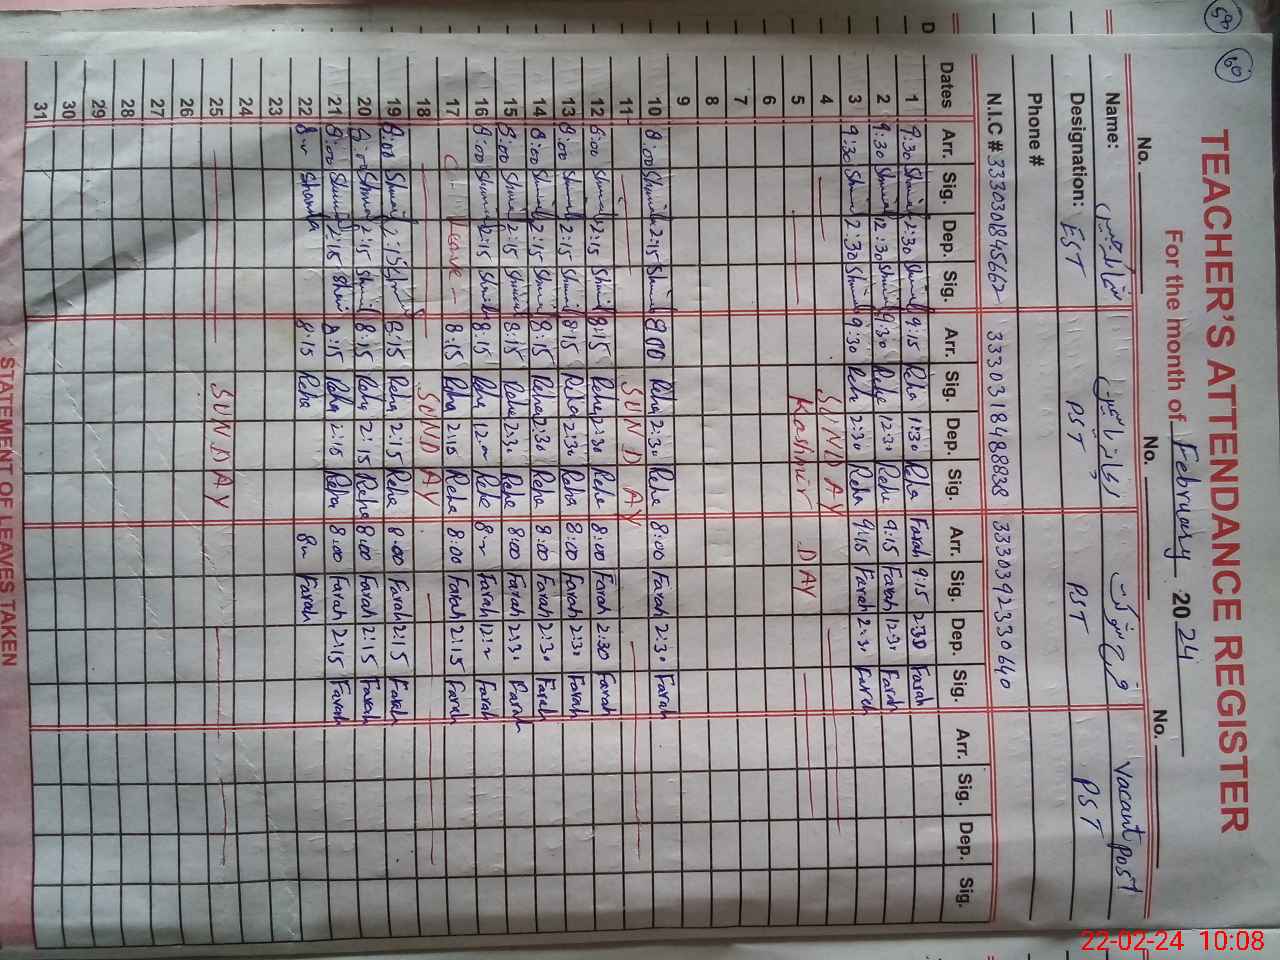 59
60
TEACHER'S ATTENDANCE REGISTER
For the month of February 2024
No. No. No.
Name: Vacant post
Designation: EST PST PST PST
Phone #
N.I.C # 3330308456 33303184888 3330392330640
Dates Arr. Sig. Dep. Sig. Arr. Sig. Dep. Sig. Arr. Sig. Dep. Sig. Arr. Sig. Dep. Sig.
1 9:30 2:30 9:15 Reha 1:30 Reha Farah 9:15 2:30 Farah
2 9:30 12:30 9:30 Reha 12:30 Reha 9:15 Farah 12:30 Farah
3 9:30 2:30 9:30 Reha 2:30 Reha 9:15 Farah 2:30 Farah
4 SUNDAY
5 Kashmir DAY
6
7
8
9
10 8:00 2:15 8:00 Reha 2:30 Reha 8:00 Farah 2:30 Farah
11 SUNDAY
12 8:00 2:15 8:15 Reha 2:30 Reha 8:00 Farah 2:30 Farah
13 8:00 2:15 8:15 Reha 2:30 Reha 8:00 Farah 2:30 Farah
14 8:00 2:15 8:15 Reha 2:30 Reha 8:00 Farah 2:30 Farah
15 8:00 2:15 8:15 Reha 2:30 Reha 8:00 Farah 2:30 Farah
16 8:00 2:15 8:15 Reha 12:00 Reha 8:00 Farah 12:00 Farah
17 Leave 8:15 Reha 2:15 Reha 8:00 Farah 2:15 Farah
18 SUNDAY
19 8:00 2:15 8:15 Reha 2:15 Reha 8:00 Farah 2:15 Farah
20 8:00 2:15 8:15 Reha 2:15 Reha 8:00 Farah 2:15 Farah
21 8:00 2:15 8:15 Reha 2:15 Reha 8:00 Farah 2:15 Farah
22 8:00 8:15 Reha 8:00 Farah
23
24
25 SUNDAY
26
27
28
29
30
31
STATEMENT OF LEAVES TAKEN
22-02-24 10:08